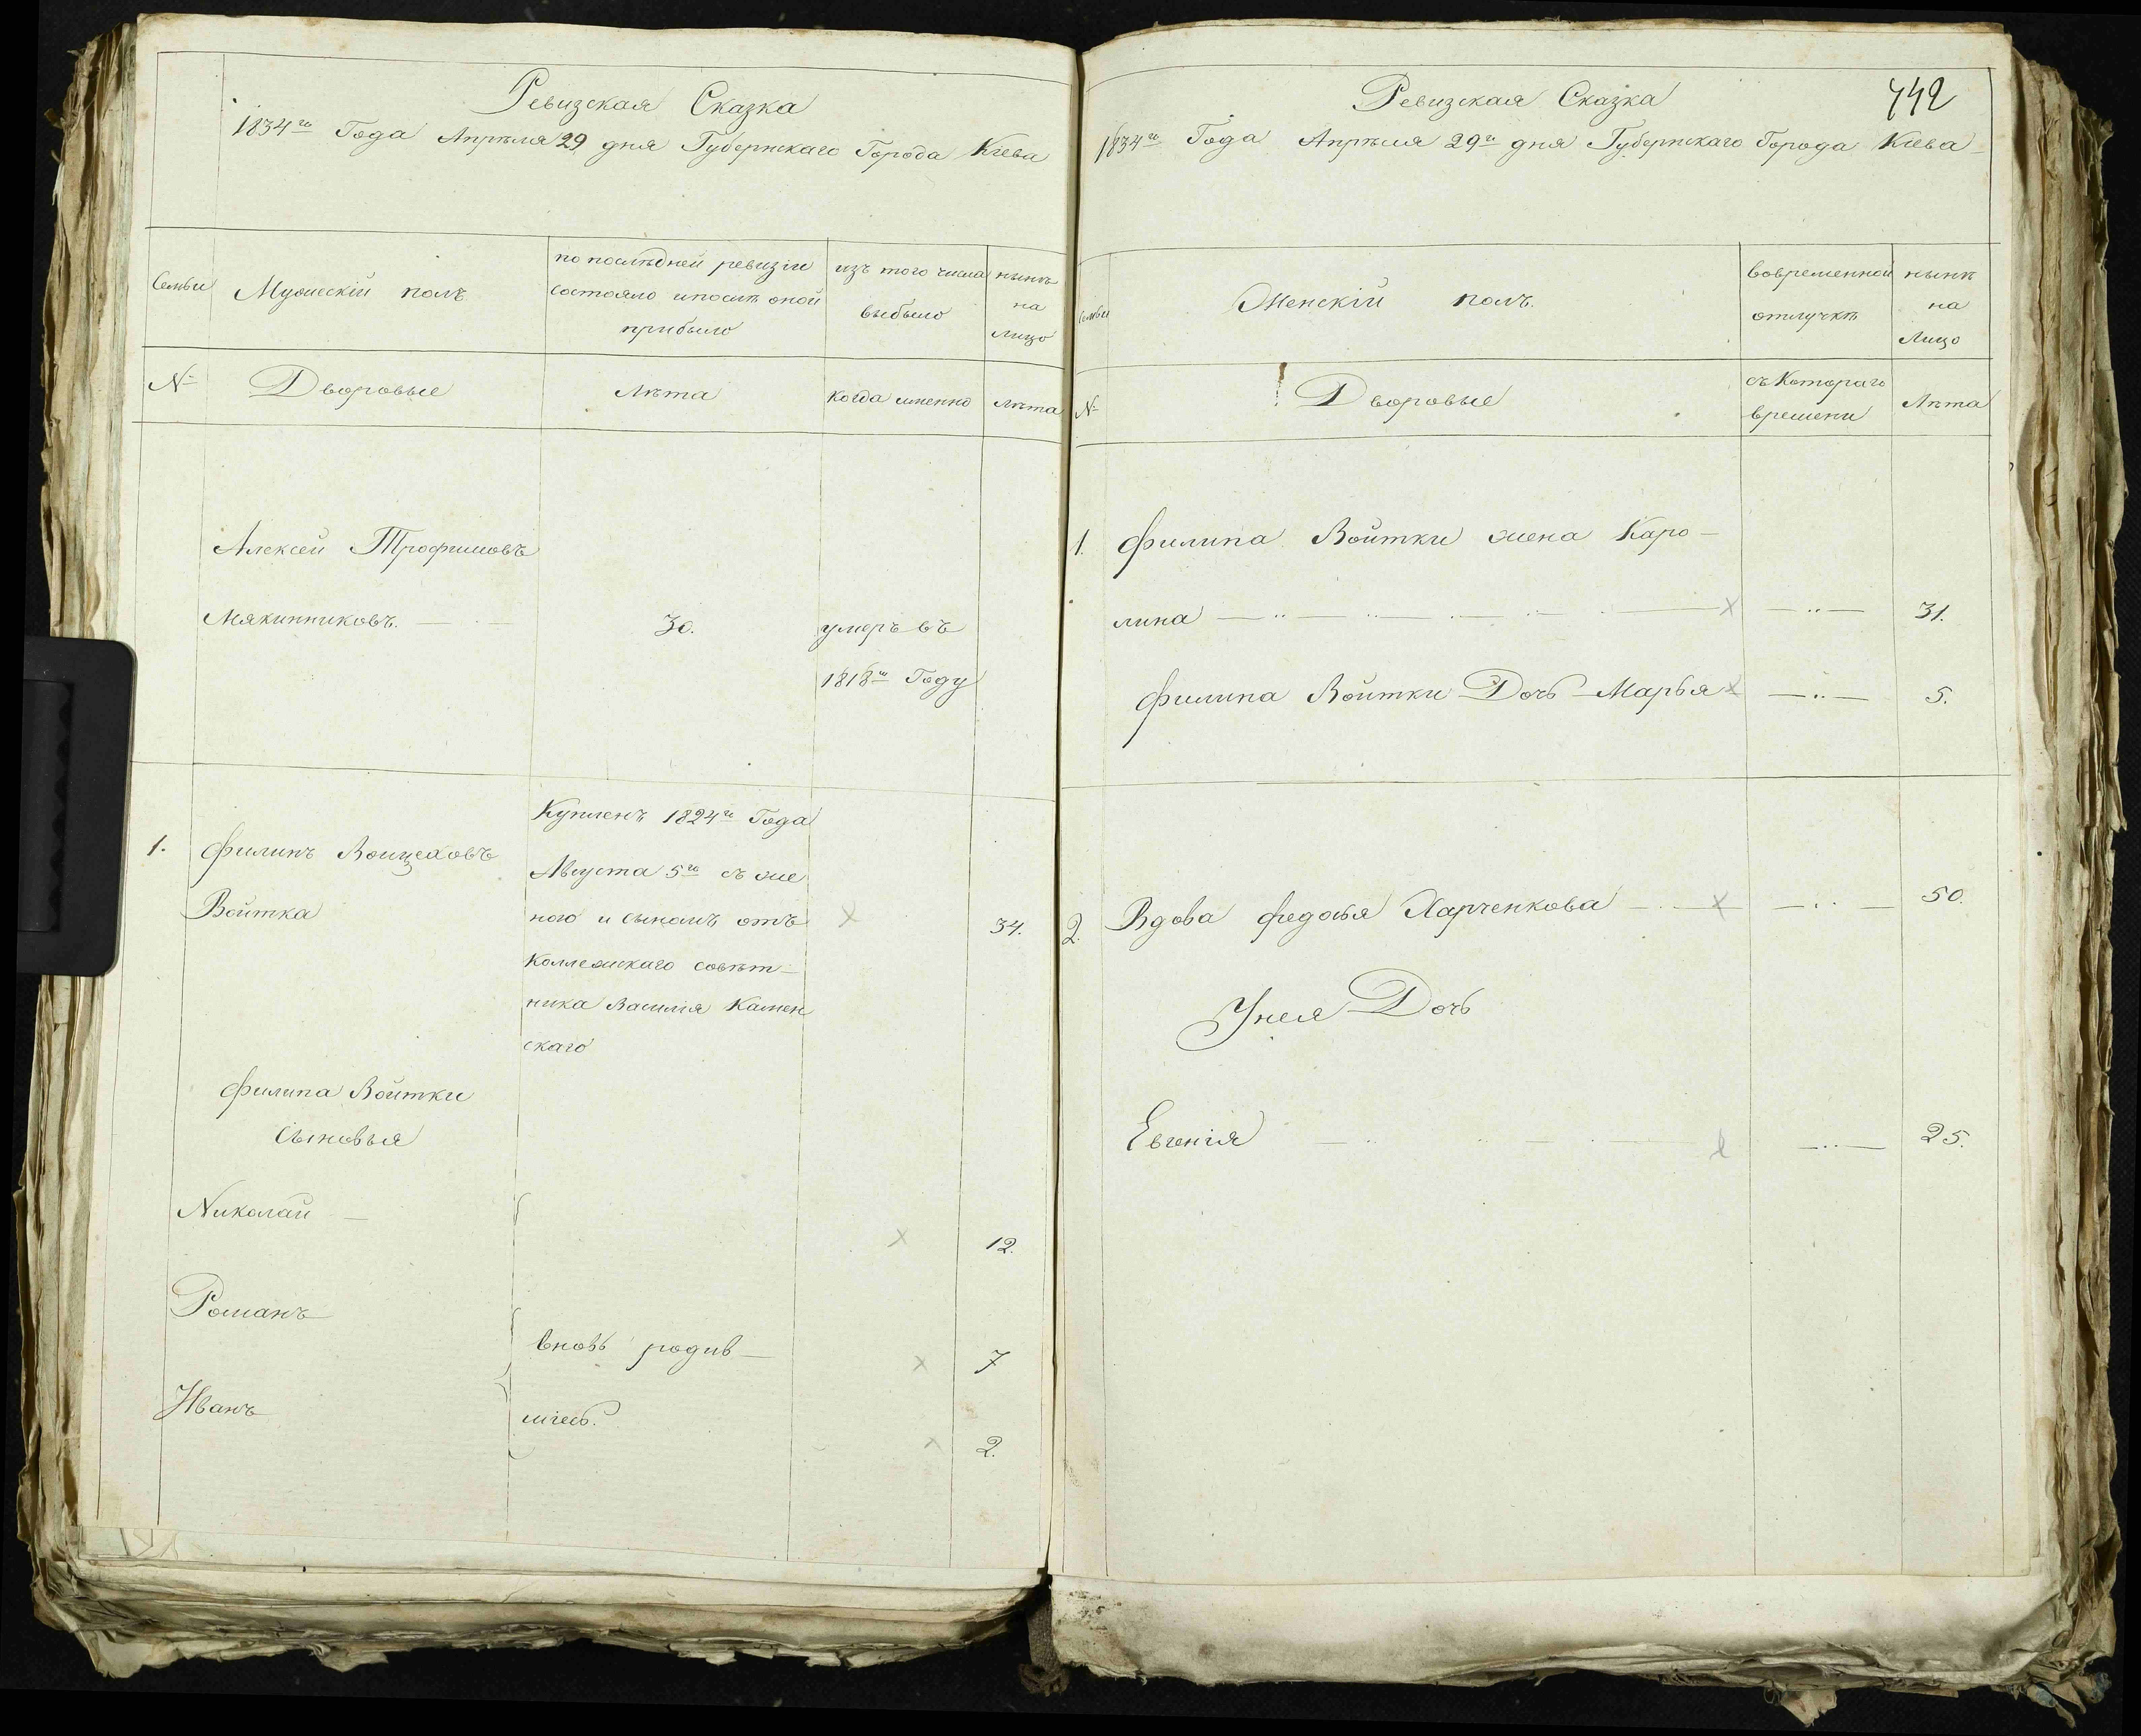 Ревизская Сказка
1834го Года Апрѣля 29 дня Губернскаго Города Кіева
Семьи
Мужескій полъ
по послѣдней ревизіи
состояло и послѣ оной
прибыло
изъ того числа
выбыло
нынѣ
на
лицо
№
Дворовые
Лѣта
когда именно
лѣта
Алексѣй Трофимовъ
Мякинниковъ.
30.
умеръ въ
1818м Году
1.
Филипъ Войцеховъ
Войтка
Купленъ 1824го Года
Августа 5го съ же
ною и сыномъ отъ
Коллежскаго совѣт-
ника Василія Камен
скаго
34.
Филипа Войтки
Сыновья
Николай
12.
Романъ
вновь родив-
7
Иванъ
шіесь.
2.
442
Ревизская Сказка
1834го Года Апрѣля 29го дня Губернскаго Города Кіева
Семьи
Женскій полъ.
Вовременной
отлучкѣ
нынѣ
на
Лицо
№
Дворовые
съ Котораго
времени
Лѣта
1. Филипа Войтки жена Каро-
лина 31.
Филипа Войтки Дочь Марья 5.
2. Вдова Федосья Харченкова 50.
Унея Дочь
Евгенія 25.